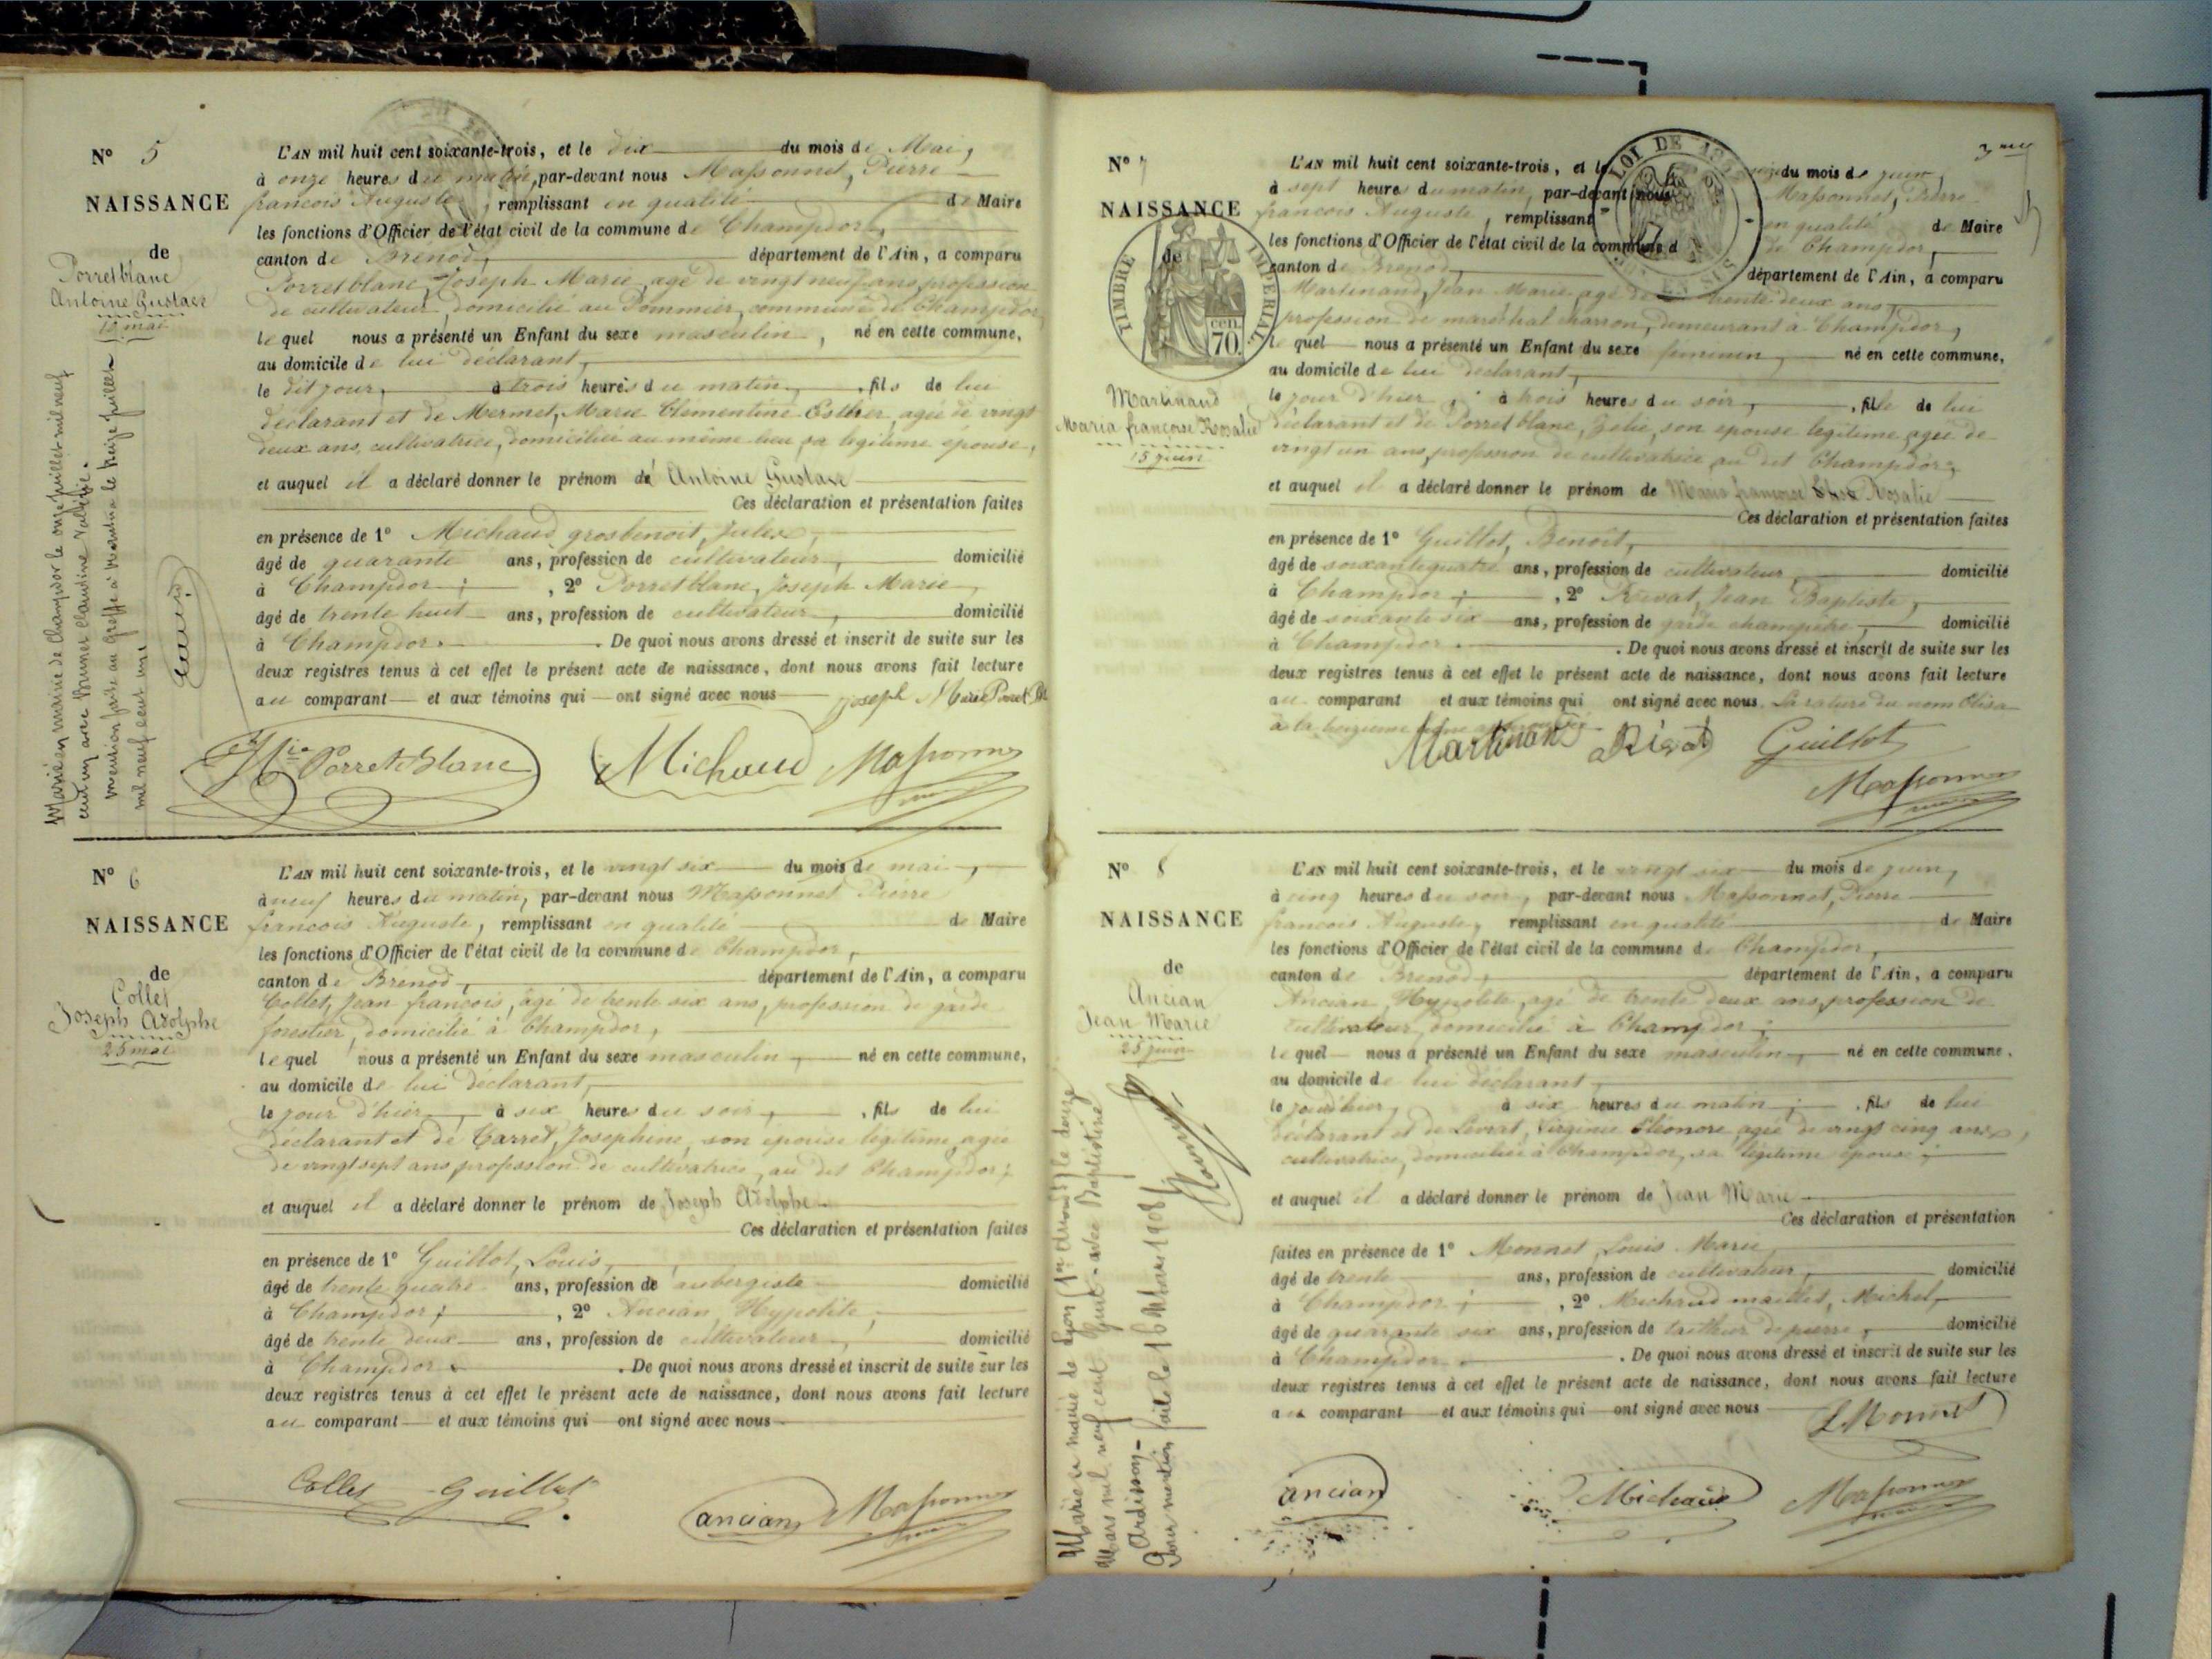 N° 5
NAISSANCE
de
Porretblanc
Antoine Gustave
10 mai
L'AN mil huit cent soixante-trois, et le dix du mois de Mai,
à onze heures du matin, par-devant nous Massonnet, Pierre
françois Auguste, remplissant en qualité de Maire
les fonctions d'Officier de l'état civil de la commune de Champdor,
canton de Brenod, département de l'Ain, a comparu
Porretblanc, Joseph Marie, agé de vingt neuf ans, profession
de cultivateur, domicilié au Pommier, commune de Champdor,
le quel nous a présenté un Enfant du sexe masculin, né en cette commune,
au domicile de lui déclarant,
le dit jour, à trois heures du matin, fils de lui
déclarant et de Mermet, Marie Clementine Esther, agée de vingt
deux ans, cultivatrice, domiciliée au même lieu, sa legitime épouse,
et auquel il a déclaré donner le prénom de Antoine Gustave
Ces déclaration et présentation faites
en présence de 1° Michaud grosbenoit, Jules,
âgé de quarante ans, profession de cultivateur, domicilié
à Champdor; , 2° Porretblanc, Joseph Marie,
âgé de trente huit ans, profession de cultivateur, domicilié
à Champdor. De quoi nous avons dressé et inscrit de suite sur les
deux registres tenus à cet effet le présent acte de naissance, dont nous avons fait lecture
au comparant et aux témoins qui ont signé avec nous joseph Marie Porret
Porret-blanc Michaud Massonnet
Marié en mairie de Champdor le onze juillet mil neuf
cent un avec Brunet Claudine
mention faite au Greffe à le treize juillet
mil neuf cent un
N° 6
NAISSANCE
de
Collet
Joseph Adolphe
25 mai
L'AN mil huit cent soixante-trois, et le vingt six du mois de mai,
à neuf heures du matin, par-devant nous Massonnet Pierre
françois Auguste, remplissant en qualité de Maire
les fonctions d'Officier de l'état civil de la commune de Champdor,
canton de Brenod, département de l'Ain, a comparu
Collet, Jean françois, âgé de trente six ans, profession de garde
forestier, domicilié à Champdor,
le quel nous a présenté un Enfant du sexe masculin, né en cette commune,
au domicile de lui déclarant,
le jour d'hier, à six heures du soir, fils de lui
déclarant et de Carret, Josephine, son épouse légitime, agée
de vingt sept ans, profession de cultivatrice, au dit Champdor;
et auquel il a déclaré donner le prénom de Joseph Adolphe
Ces déclaration et présentation faites
en présence de 1° Guillot, Louis,
âgé de trente quatre ans, profession de aubergiste domicilié
à Champdor; , 2° Ancian, Hypolite,
âgé de trente deux ans, profession de cultivateur, domicilié
à Champdor. De quoi nous avons dressé et inscrit de suite sur les
deux registres tenus à cet effet le présent acte de naissance, dont nous avons fait lecture
au comparant et aux témoins qui ont signé avec nous
Collet Guillot ancian Massonnet
N° 7
NAISSANCE
de
TIMBRE IMPERIAL
70 cen.
Martinand
Maria françoise Rosalie
15 juin
LOI DE
L'AN mil huit cent soixante-trois, et le du mois de juin,
à sept heures du matin, par-devant nous Massonnet, Pierre
françois Auguste, remplissant en qualité de Maire
les fonctions d'Officier de l'état civil de la commune de Champdor,
canton de Brenod, département de l'Ain, a comparu
Martinand, Jean Marie, agé de trente deux ans,
profession de maréchal charron, demeurant à Champdor,
le quel nous a présenté un Enfant du sexe féminin, né en cette commune,
au domicile de lui déclarant,
le jour d'hier, à trois heures du soir, fille de lui
déclarant et de Porret blanc, Zelie, son épouse legitime, agée de
vingt un ans, profession de cultivatrice, au dit Champdor;
et auquel il a déclaré donner le prénom de Maria françoise Rosalie
Ces déclaration et présentation faites
en présence de 1° Guillot, Benoit,
âgé de soixante quatre ans, profession de cultivateur, domicilié
à Champdor; , 2° Rivat, Jean Baptiste,
âgé de soixante six ans, profession de garde champêtre, domicilié
à Champdor. De quoi nous avons dressé et inscrit de suite sur les
deux registres tenus à cet effet le présent acte de naissance, dont nous avons fait lecture
au comparant et aux témoins qui ont signé avec nous. La rature du nom Elisa
à la
Martinand Rivat Guillot
Massonnet
N° 8
NAISSANCE
de
Ancian
Jean Marie
25 juin
L'AN mil huit cent soixante-trois, et le vingt six du mois de juin,
à cinq heures du soir, par-devant nous Massonnet, Pierre
françois Auguste, remplissant en qualité de Maire
les fonctions d'Officier de l'état civil de la commune de Champdor,
canton de Brenod, département de l'Ain, a comparu
Ancian, Hypolite, agé de trente deux ans, profession de
cultivateur, domicilié à Champdor;
le quel nous a présenté un Enfant du sexe masculin, né en cette commune,
au domicile de lui déclarant,
le jour d'hier, à six heures du matin, fils de lui
déclarant et de Levrat, Virginie Eléonore, agée de vingt cinq ans,
cultivatrice, domiciliée à Champdor, sa légitime épouse;
et auquel il a déclaré donner le prénom de Jean Marie
Ces déclaration et présentation
faites en présence de 1° Monnet, Louis Marie,
âgé de trente ans, profession de cultivateur, domicilié
à Champdor; , 2° Michaud maillet, Michel,
âgé de quarante six ans, profession de tailleur de pierre, domicilié
à Champdor. De quoi nous avons dressé et inscrit de suite sur les
deux registres tenus à cet effet le présent acte de naissance, dont nous avons fait lecture
au comparant et aux témoins qui ont signé avec nous
L Monnet
ancian Michaud Massonnet
Marié en mairie de Lyon (1er arrondt) le douze
Mars mil neuf cent avec Baptistine
Ardisson
Pour mention faite le 16 Mars